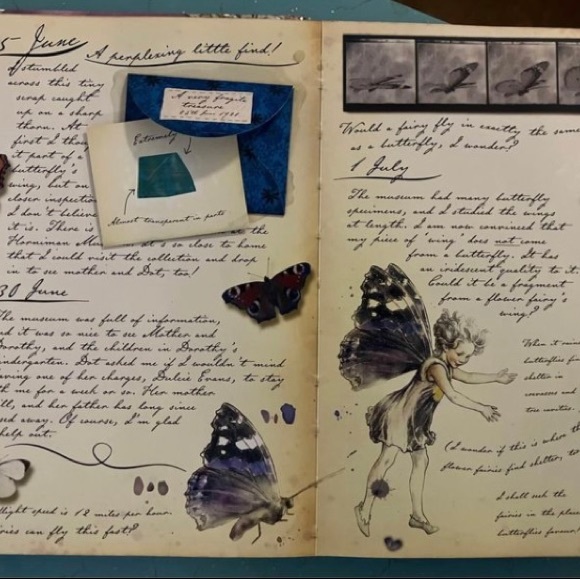 5 June
A perplexing little find!
I stumbled
across this tiny
scrap caught
up on a sharp
thorn. At
first I
it part of a
butterfly's
wing, but on
closer inspection
I don't believe
it is. There is the
Horniman so close to home
that I could visit the collection and drop
in to see mother and Dot, too!
A very fragile
treasure
Extremely
Almost transparent in parts
30 June
The museum was full of information,
and it was so nice to see Mother and
Dorothy, and the children in Dorothy's
kindergarten. Dot asked me if I wouldn't mind
having one of her charges, Dulcie Evans, to stay
with me for a week or so. Her mother
ill, and her father has long since
passed away. Of course, I'm glad
help out.
flight speed is 12 miles per hour.
fairies can fly this fast?
Would a fairy fly in exactly the same
as a butterfly, I wonder?
1 July
The museum had many butterfly
specimens, and I studied the wings
at length. I am now convinced that
my piece of 'wing' does not come
from a butterfly. It has
an iridescent quality to it.
Could it be a fragment
from a flower fairy's
wing?
When it rains
butterflies
shelter in
crevices and
tree cavities.
(I wonder if this is where the
flower fairies find shelter, too
I shall seek the
fairies in the places
butterflies favour!